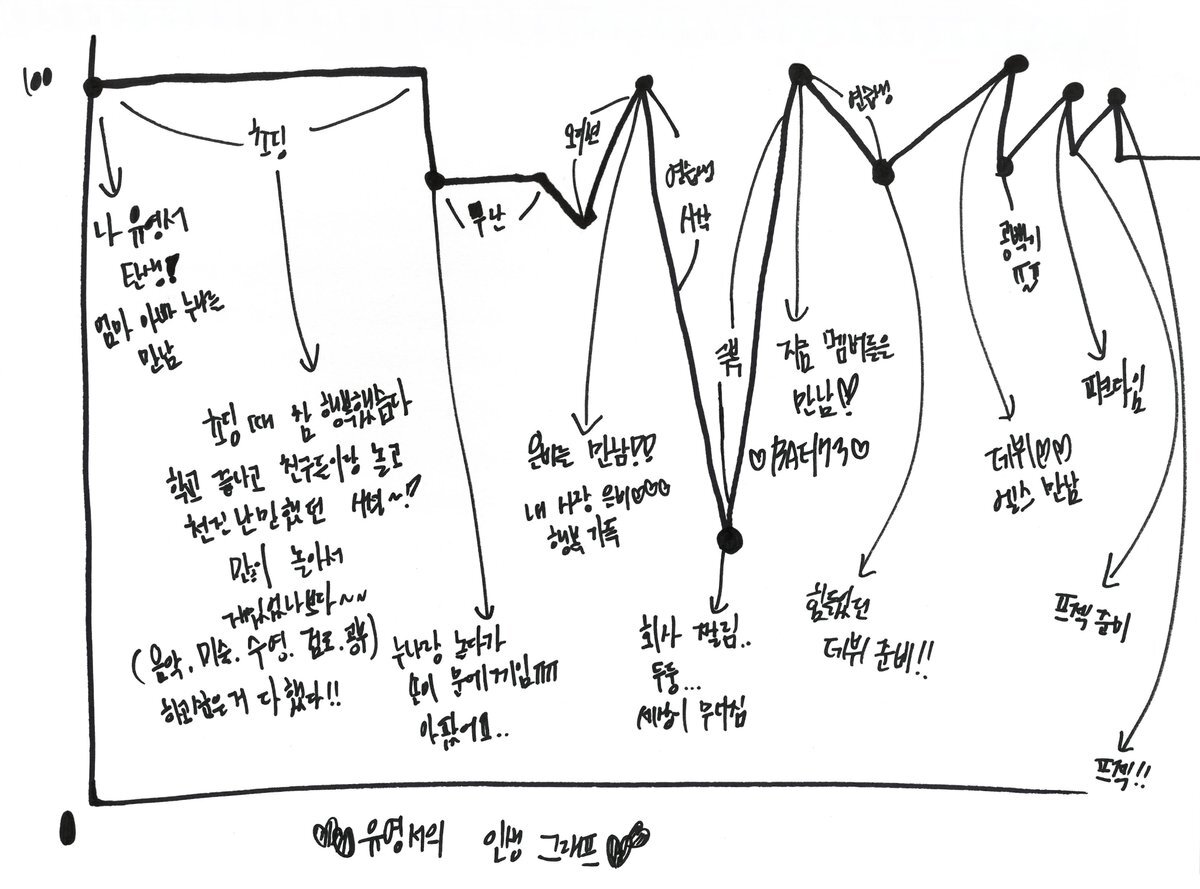 100
초딩
나 유영서
탄생!
엄마 아빠 누나를
만남
초딩 때 참 행복했습다
학교 끝나고 친구들이랑 놀고
천진난만했던 시절~!
많이 놀아서
재밌었나보다~~
(음악, 미술, 수영, 검도, 공부)
하고싶은거 다 했다!!
무난
누나랑 놀다가
손이 문에 끼임ㅠㅠ
아팠어요..
오디션
연습생
시작
은비를 만남!!
내 사랑 은비♡♡♡
행복 가득
회사 짤림..
두둥...
세상이 무너짐
지금 멤버들을
만남!♡
♡BAE173♡
연습생
힘들었던
데뷔 준비!!
공백기
ㅠㅠ
데뷔♡♡
엘스 만남
파크타임
프젝 준비
프젝!!
0
유영서의 인생 그래프